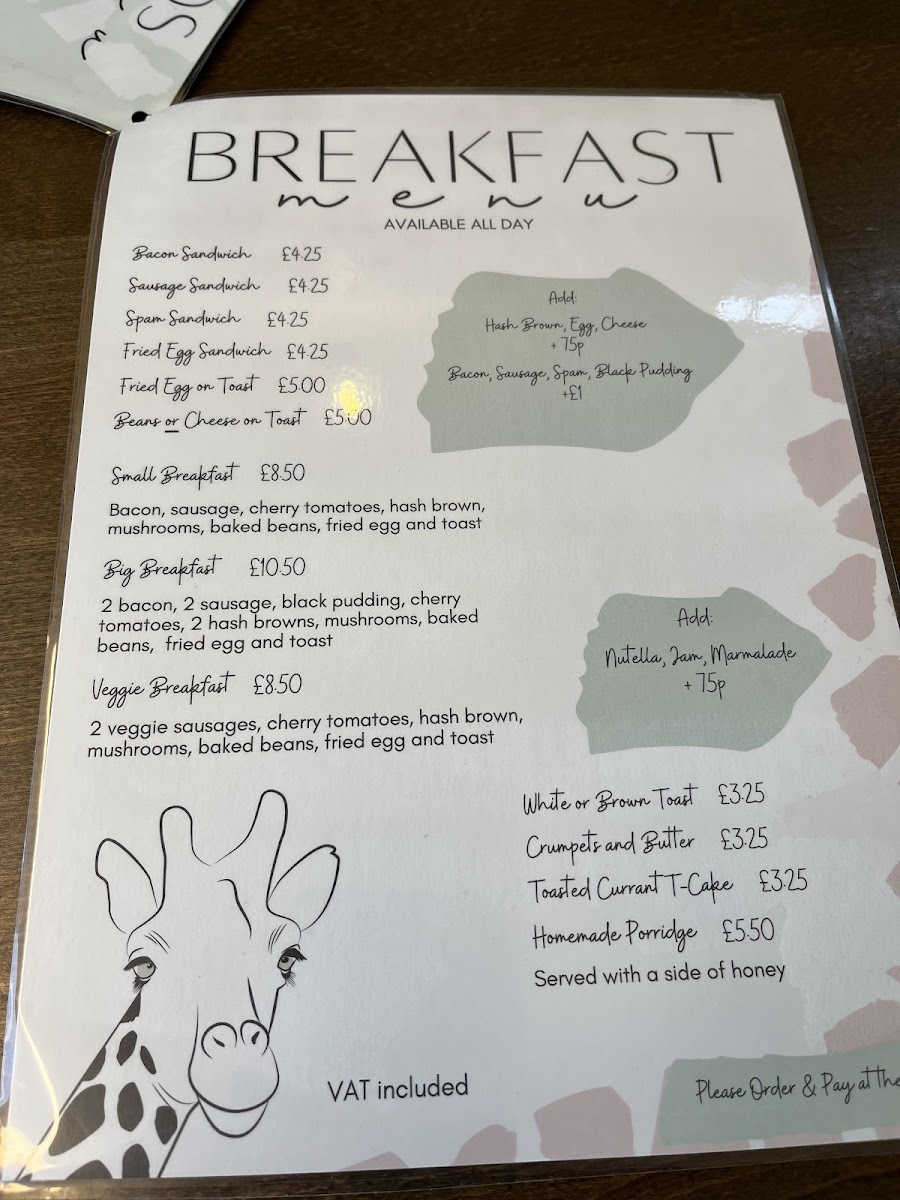 BREAKFAST
menu
AVAILABLE ALL DAY
Bacon Sandwich £4.25
Sausage Sandwich £4.25
Spam Sandwich £4.25
Fried Egg Sandwich £4.25
Fried Egg on Toast £5.00
Beans or Cheese on Toast £5.00
Add:
Hash Brown, Egg, Cheese
+ 75p
Bacon, Sausage, Spam, Black Pudding
+£1
Small Breakfast £8.50
Bacon, sausage, cherry tomatoes, hash brown,
mushrooms, baked beans, fried egg and toast
Big Breakfast £10.50
2 bacon, 2 sausage, black pudding, cherry
tomatoes, 2 hash browns, mushrooms, baked
beans, fried egg and toast
Veggie Breakfast £8.50
2 veggie sausages, cherry tomatoes, hash brown,
mushrooms, baked beans, fried egg and toast
Add:
Nutella, Jam, Marmalade
+ 75p
White or Brown Toast £3.25
Crumpets and Butter £3.25
Toasted Currant T-Cake £3.25
Homemade Porridge £5.50
Served with a side of honey
VAT included
Please Order & Pay at the